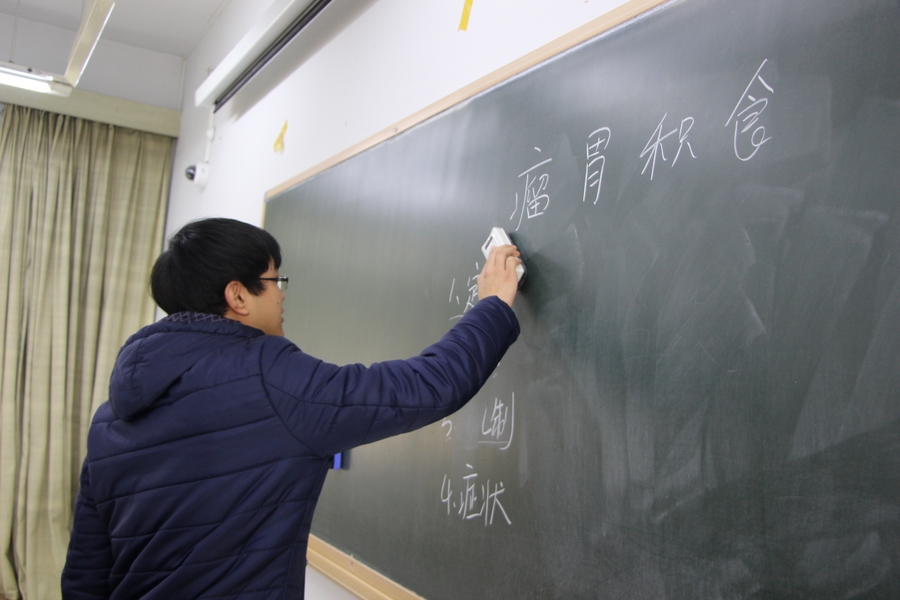 瘤胃积食
1.定
制
4.症状